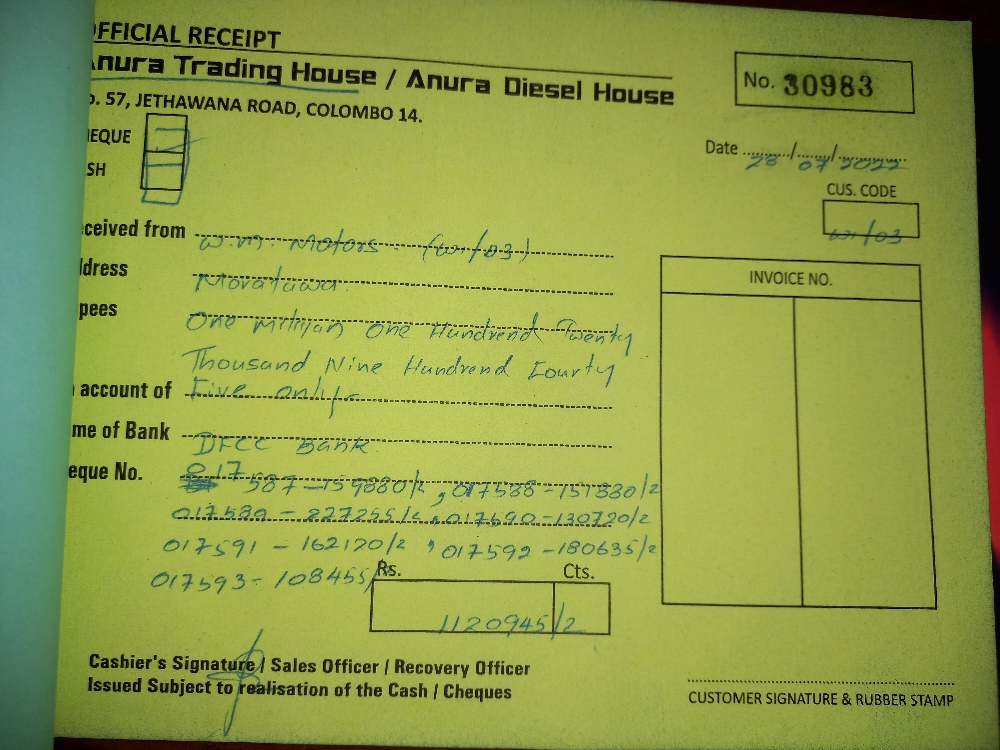 OFFICIAL RECEIPT
Anura Trading House / Anura Diesel House
No. 30983
o. 57, JETHAWANA ROAD, COLOMBO 14.
HEQUE
SH
Date 28/07/2022
CUS. CODE
W/03
ceived from W.M. Motors. (W/03)
ddress Moratuwa
INVOICE NO.
pees One Million One Hundrend Twenty
Thousand Nine Hundrend Fourty
account of Five only/-
me of Bank DFCC Bank
eque No. 017587 - 159880/=, 017588 - 151880/=
017589 - 227255/=, 017590 - 130720/=
017591 - 162120/=, 017592 - 180635/=
017593 - 108455/=
Rs. Cts.
1120945/=
Cashier's Signature / Sales Officer / Recovery Officer
Issued Subject to realisation of the Cash / Cheques
CUSTOMER SIGNATURE & RUBBER STAMP